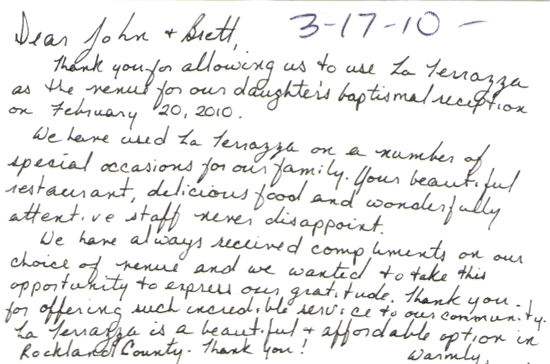 Dear John + Brett, 3-17-10 -
Thank you for allowing us to use La Terrazza
as the venue for our daughter's baptismal reception
on February 20, 2010.
We have used La Terrazza on a number of
special occasions for our family. Your beautiful
restaurant, delicious food and wonderfully
attentive staff never disappoint.
We have always received compliments on our
choice of venue and we wanted to take this
opportunity to express our gratitude. Thank you
for offering such incredible service to our community.
La Terrazza is a beautiful + affordable option in
Rockland County. Thank you! Warmly,